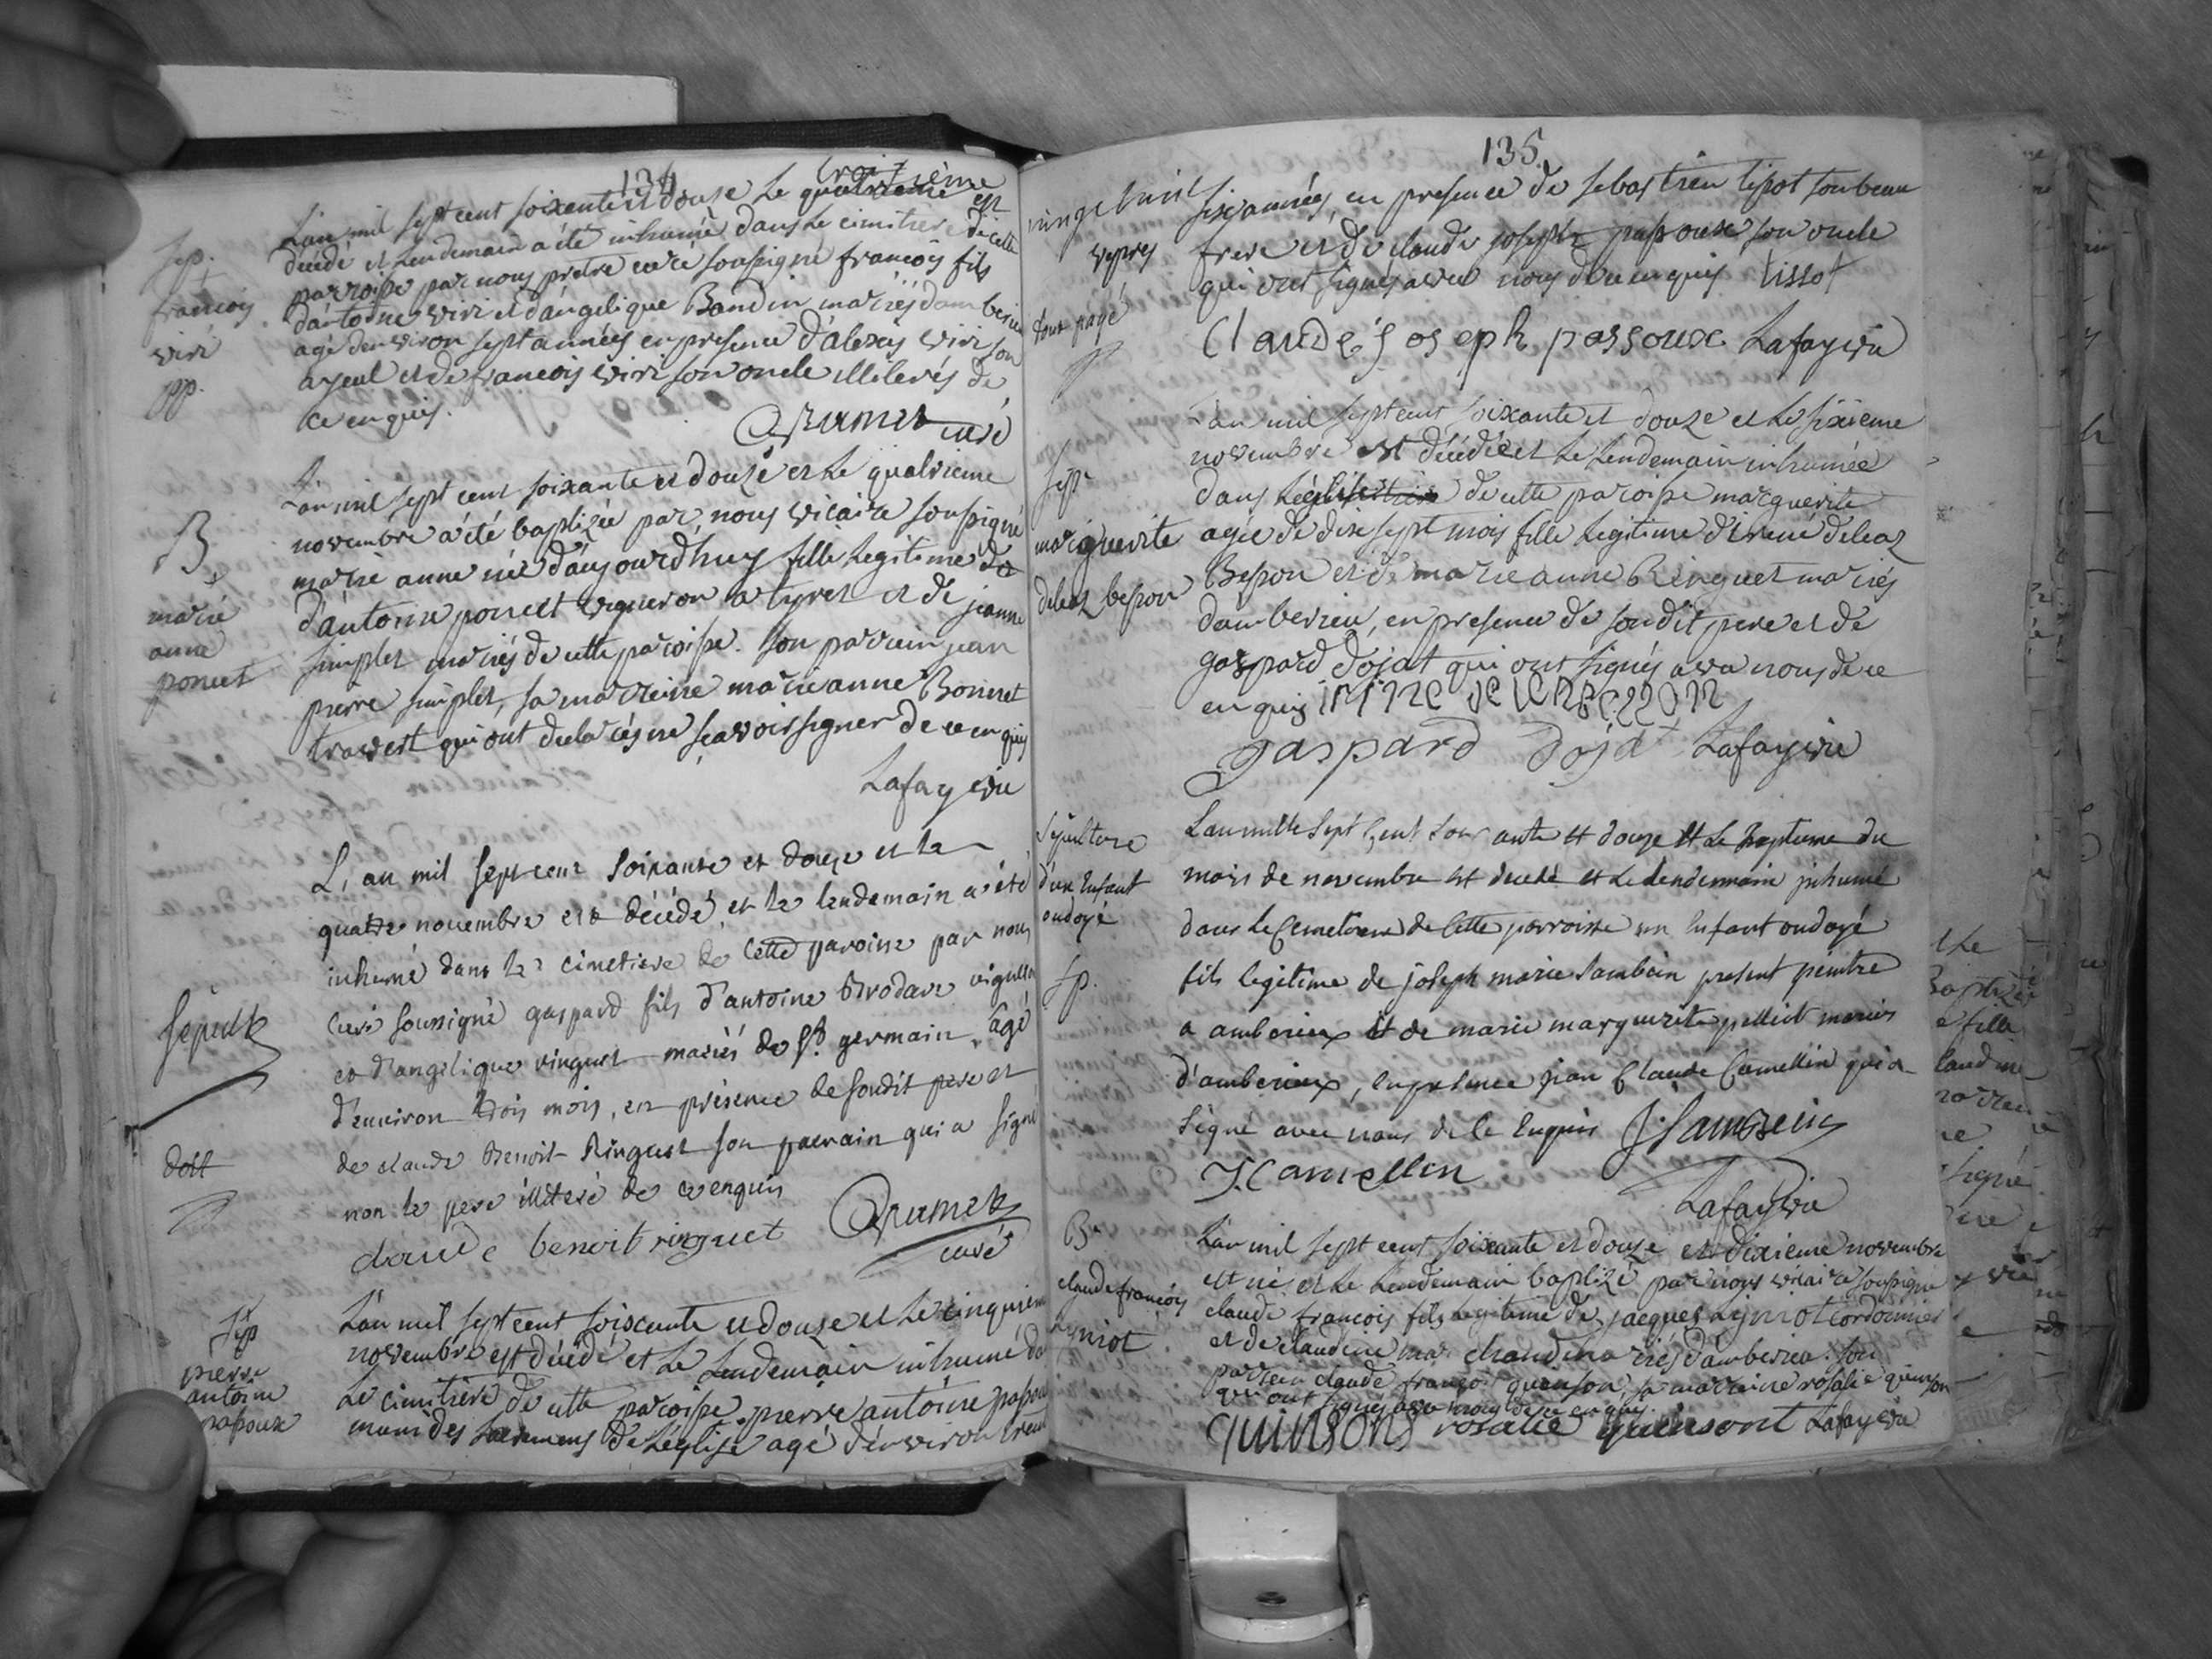 134
troisième
L'an mil sept cent soixante et douse Le quatrieme est
décédé et Lendemain a été inhumé dans Le cimitiere de cette
parroisse par nous pretre curé soussigné francois fils
d'antoine viri et d'angelique Baudin mariés dambericu
agé denviron sept années en presence d'alexis viri son
ayeul et de francois viri son oncle illiterés de
ce enquis.
curé
Sep.
francois
viri
pp.
L'an mil sept cent soixante et douze et Le quatrieme
novembre a été baptizée par nous vicaire soussigné
marie anne née d'aujourdhuy fille Legitime de
d'antoine poncet vigneron a tyret et de jeanne
simplet mariés de cette paroisse. son parrein jean
pierre simplet, sa marreine marie anne Bonnet
travert qui ont declarés ne sçavoir signer de ce enquis
Lafay vic
B
marie
anne
poncet
L'an mil sept cent soixante et douze et le
quatre novembre est décédé et le lendemain a été
inhumé dans le cimetiere de cette paroisse par nous
curé soussigné gaspard fils d'antoine Brodare
et d'angelique ringuet mariés de St germain, agé
d'environ trois mois, en présence de sondit pere et
de claude Benoit Ringuet son parrain qui a signé
non le pere illiteré de ce enquis
claude benoit ringuet
curé
sepult
doit
L'an mil sept cent soixante et douze et Le cinquieme
novembre est décédé et Le Lendemain inhumé da
Le cimitiere de cette paroisse pierre antoine passou
muni des sacremens de L'eglise agé d'environ trent
sep
pierre
antoine
passoux
135
six années, en presence de sebastien tissot son beau
frere et de claude joseph passoux son oncle
qui ont signés avec nous de ce enquis tissot
Claude joseph passoux Lafay vic
vepres
tout payé
L'an mil sept cent soixante et douze et Le sixieme
novembre est décédée et Le Lendemain inhumée
dans Leglise de cette paroisse marguerite
agée de dix sept mois fille Legitime d'irené deleaz
Besson et de marie anne Ringuet mariés
damberieu, en presence de son dit pere et de
gaspard dojat qui ont signés avec nous de ce
enquis
gaspard dojat Lafay vic
sep.
marguerite
deleaz besson
L'an mille sept cent soixante et douze et Le septieme du
mois de novembre est decedé et Le lendemain inhumé
dans Le cemetiere de cette parroisse un enfant ondoyé
fils legitime de joseph marie sambein present peintre
a amberieux et de marie marguerite pellict mariés
d'amberieux, en presence jean claude Camellin qui a
signé avec nous de ce enquis J. Sambein
J. Camellin
Lafay vic
sepulture
d'un enfant
ondoyé
sp.
L'an mil sept cent soixante et douze et dixieme novembre
est né et Le Lendemain baptizé par nous vicaire soussigné
claude francois fils Legitime de jacques Lyniot cordonnier
et de claudine mariés damberieu. son
parrein claude françois quinson, sa marreine rosalie quinson
qui ont signés avec nous de ce enquis.
quinsons rosalie quinsont Lafay vic
B.
claude francois
Lyniot